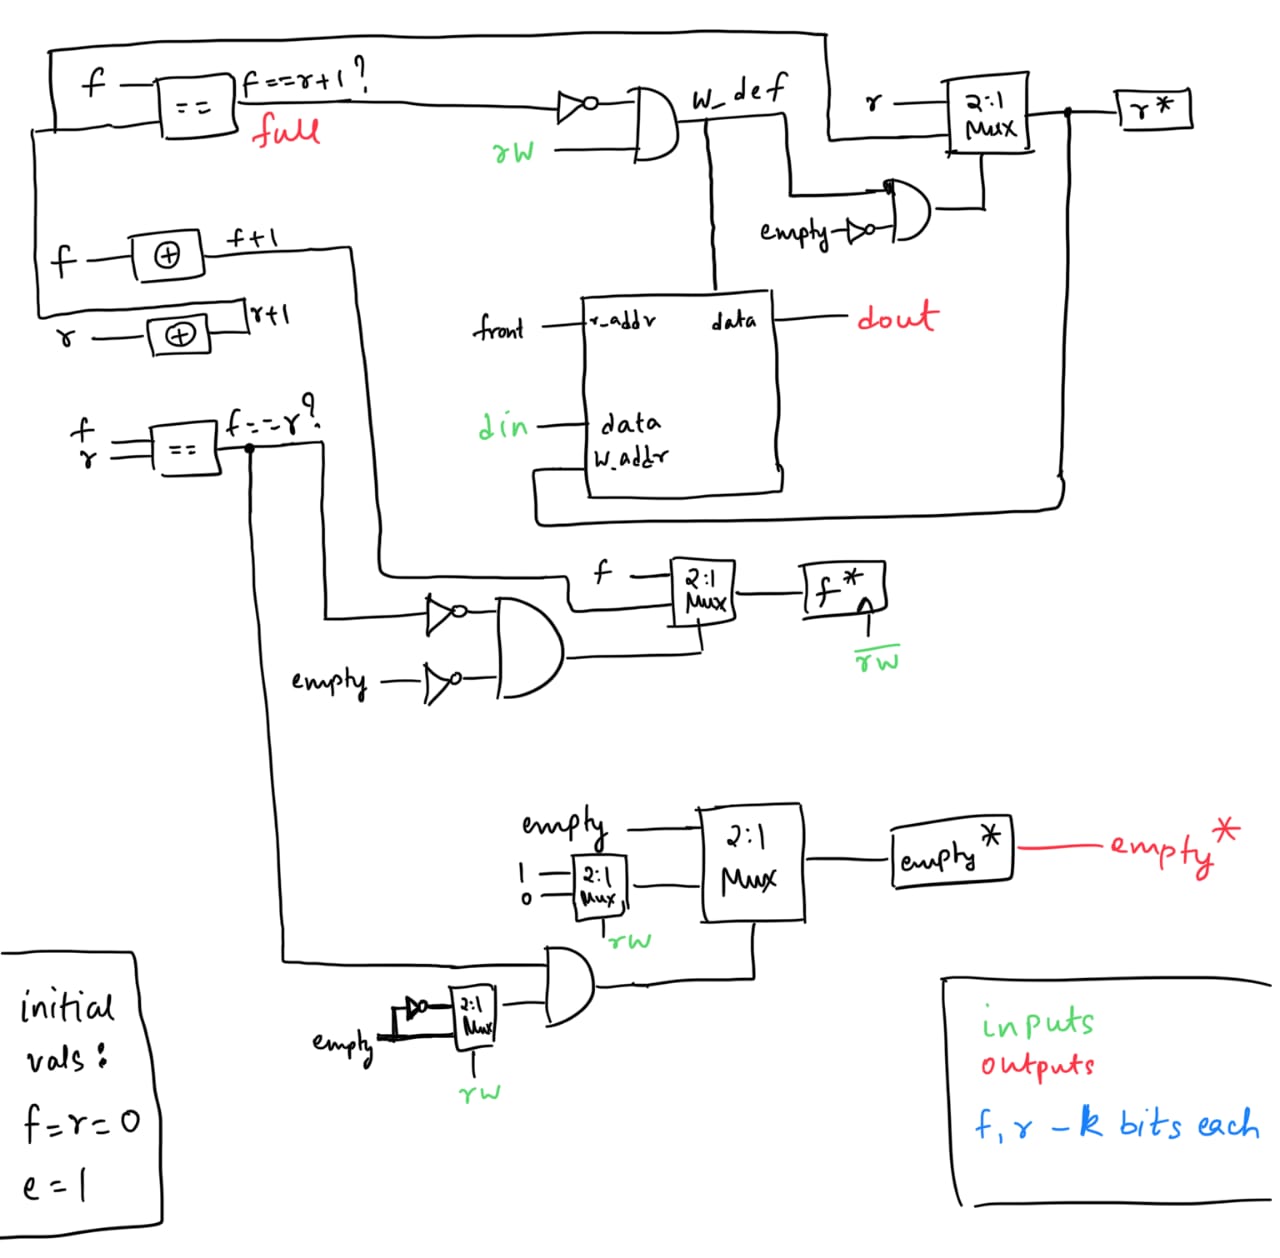 f
==
f==r+1?
full
rw
w_def
r
2:1
Mux
r*
empty
f
⊕
f+1
r
⊕
r+1
front
r_addr
data
dout
din
data
w_addr
f
r
==
f==r?
f
2:1
Mux
f*
rw
empty
empty
2:1
Mux
empty*
empty*
1
0
2:1
Mux
rw
empty
2:1
Mux
rw
initial
vals:
f=r=0
e=1
inputs
outputs
f, r - k bits each